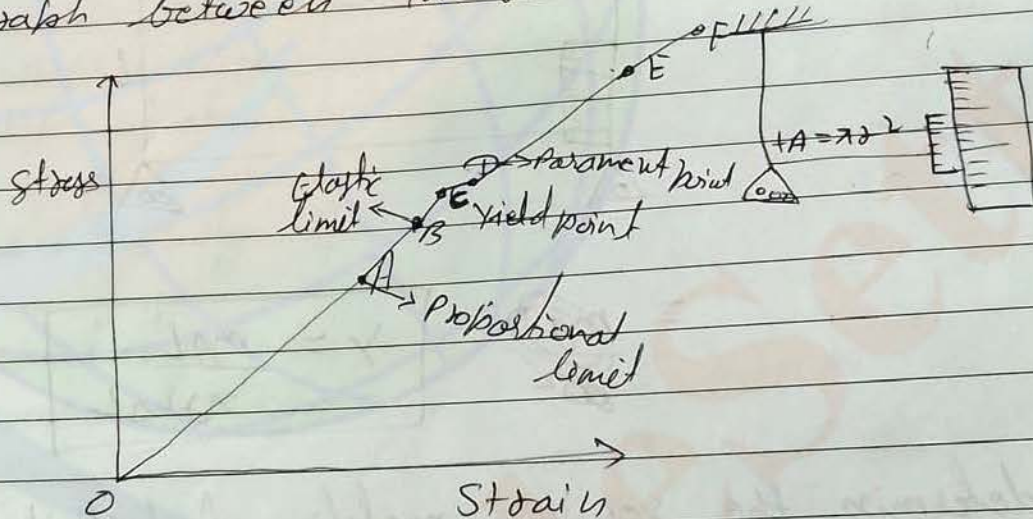 raph between
E
F
Stress
Elastic limit
B
C
D
Parament point
Yield point
A
Proportional limit
A = πr²
O
Strain